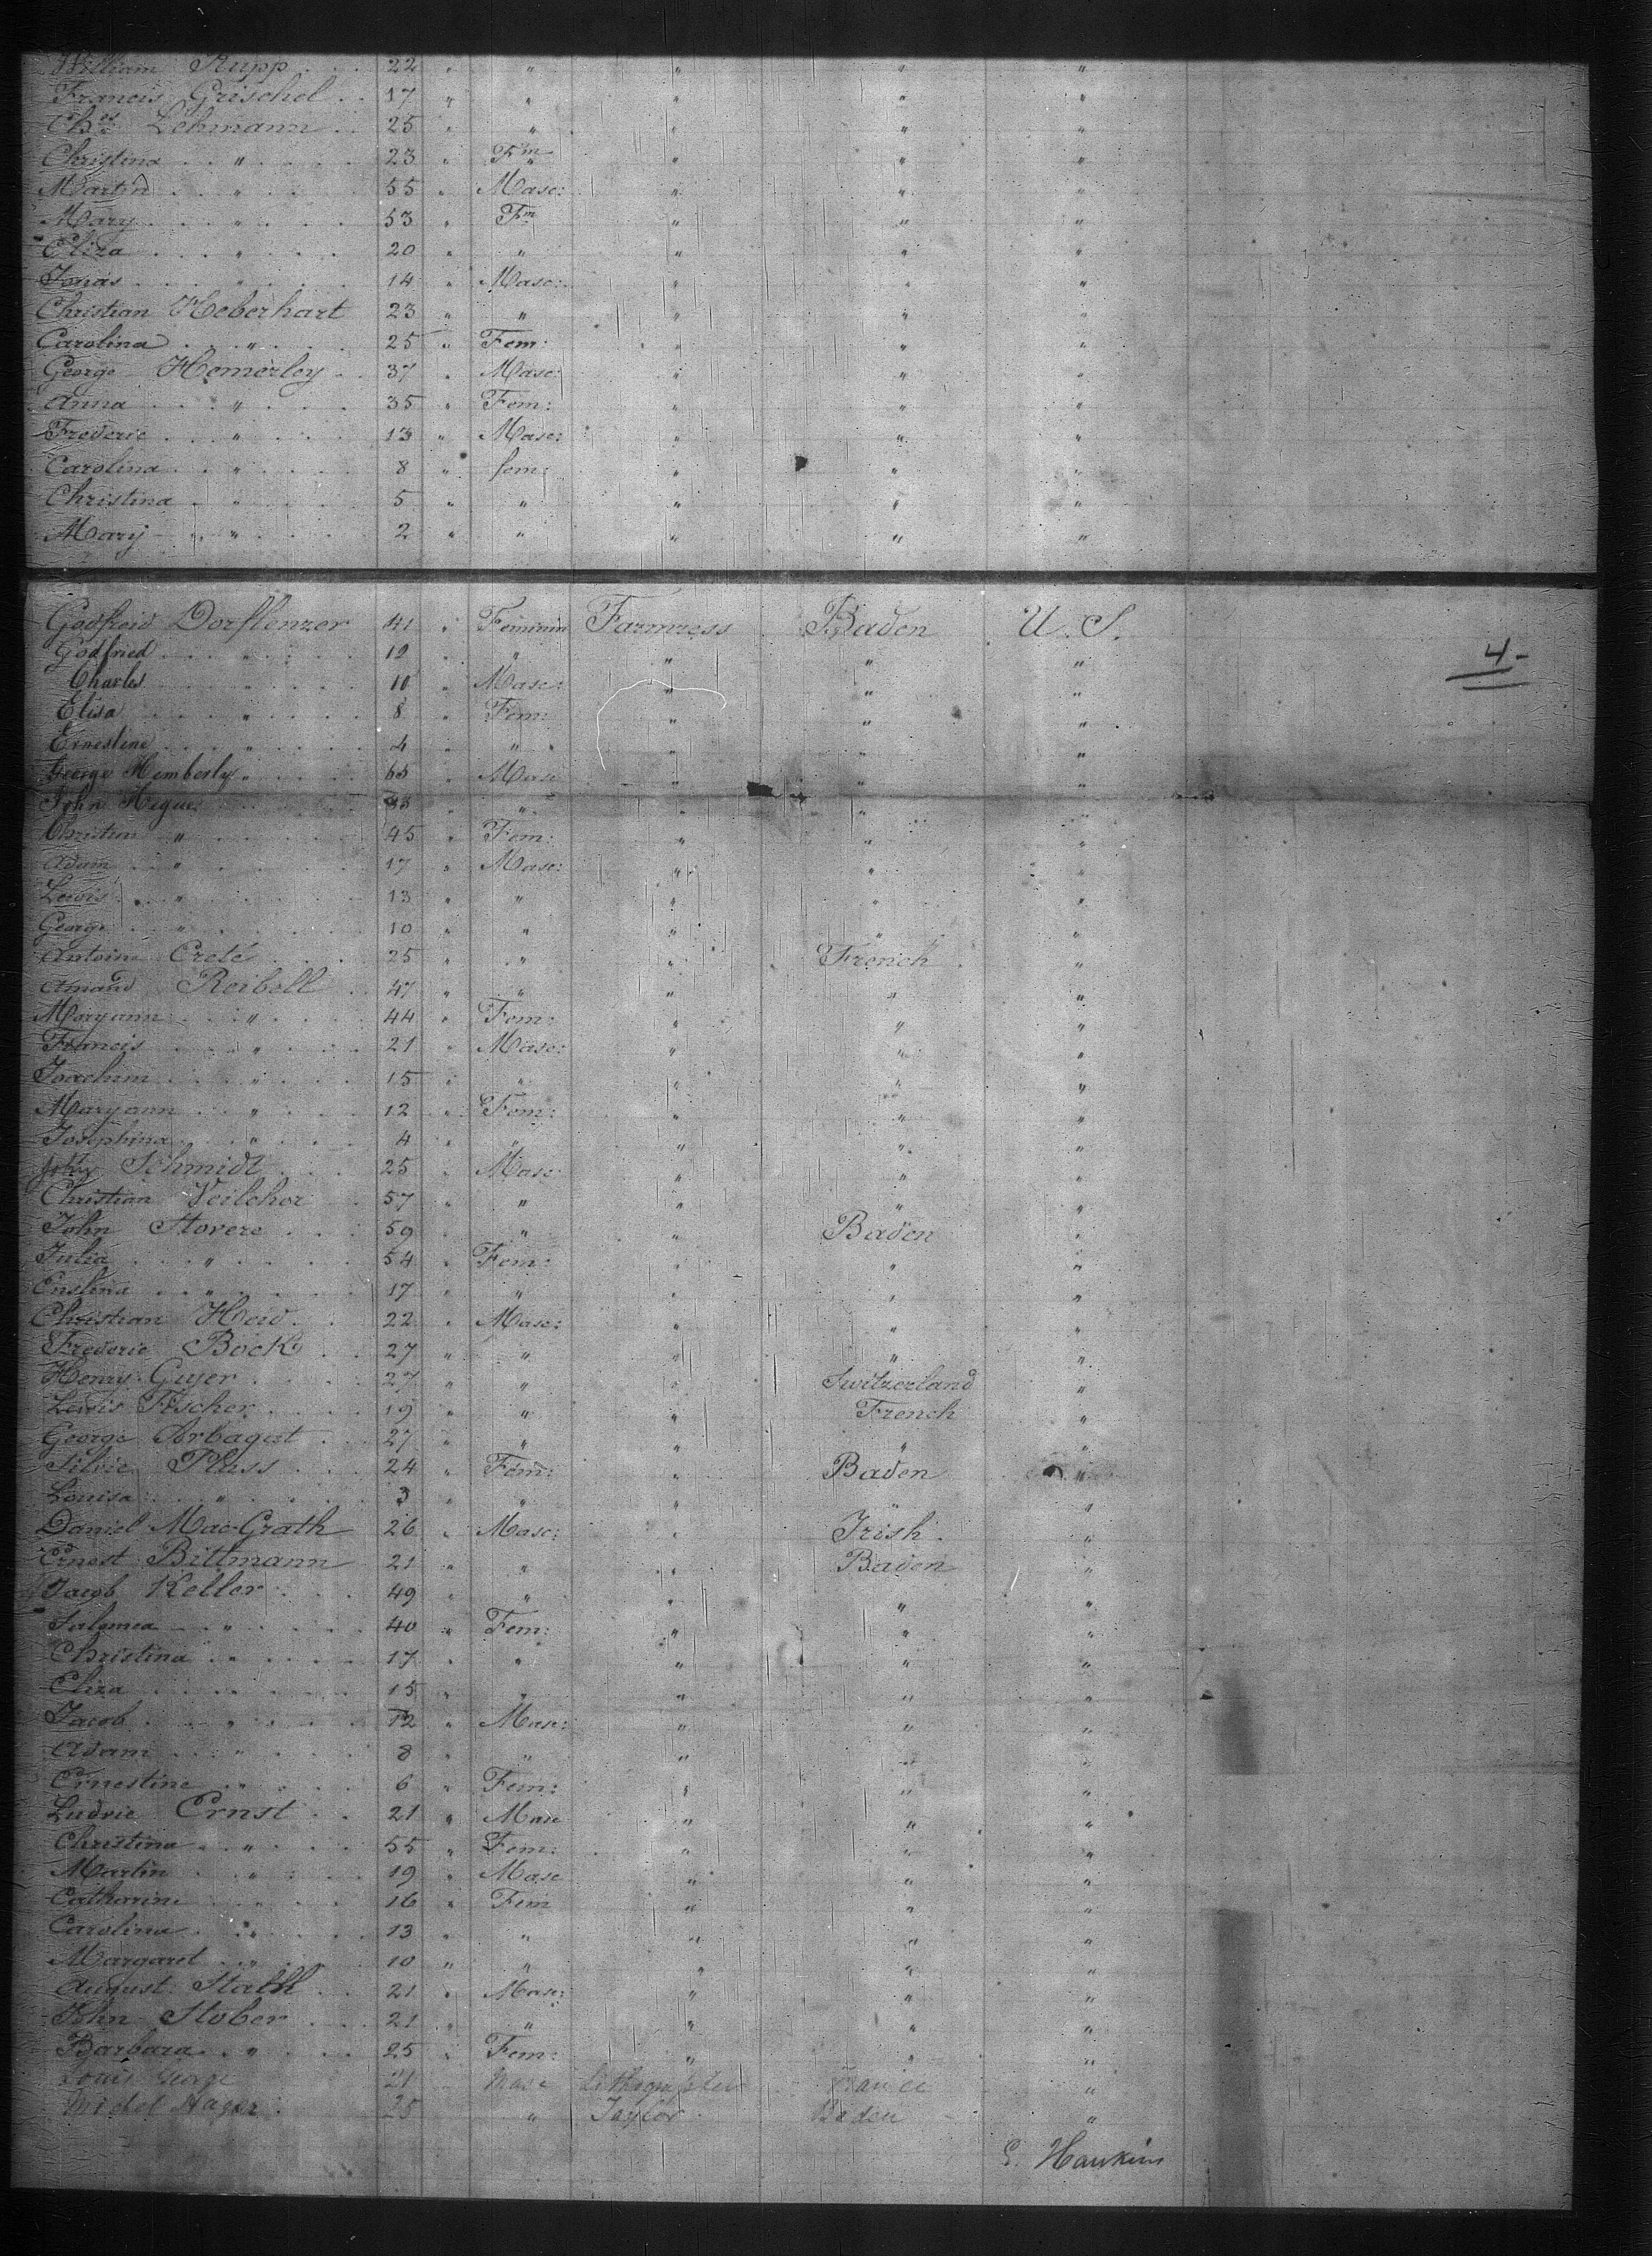 William Rupp . . 22 " " " " "
Francis Grischel . . 17 " " " " "
Chs Lehmann . . 25 " " " " "
Christina . . " . . . . 23 " Fm " " "
Martin . . " . . . 55 " Masc: " " "
Mary . . . " . . . 53 " Fm " " "
Eliza . . . " . . . 20 " " " " "
Jonas . . . " . . . 14 " Masc: " " "
Christian Heberhart 23 " " " " "
Carolina . . " . . . 25 " Fem: " " "
George Hemerley . . 37 " Masc: " " "
Anna . . . " . . . 35 " Fem: " " "
Frederic . . " . . . 13 " Masc: " " "
Carolina . . " . . . 8 " fem: " " "
Christina . " . . . 5 " " " " "
Mary . . " . . . 2 " " " " "
Godfreid Dorflenzer 41 " Feminin Farmress Baden U. S.
4-
Godfried . . . " . . . 12 " " " " "
Charles . . . . . 10 " Masc: " " "
Elisa . . . " . . . 8 " Fem: " " "
Ernestine . . . " . . . 4 " " " " "
George Hemberly . . . 65 " Masc " " "
John Hegue " " " " "
Christian " . . . 45 " Fem: " " "
Adam . . " . . . 17 " Masc: " " "
Lewis . . " . . . 13 " " " " "
George . . " . . . 10 " " " " "
Antoine Crete . . . 25 " " " French "
Amand Reibell . . 47 " " " " "
Maryann . . " . . . 44 " Fem: " " "
Francis . . " . . . 21 " Masc: " " "
Joachim . . . " . . . 15 " " " " "
Maryann . . " . . . 12 " Fem: " " "
Josephina . . " . . . 4 " " " " "
John Schmidt . . . 25 " Masc " " "
Christian Veilcher . . 57 " " " " "
John Storere . . . 59 " " " Baden "
Julia . . . " . . . 54 " Fem: " " "
Enslina . . " . . . 17 " " " " "
Christian Heid . . 22 " Masc: " " "
Frederic Bock . . 27 " " " " "
Henry Guyer . . . 27 " " " Switzerland "
Lewis Fischer . . . 19 " " " French "
George Arbagast . . 27 " " " " "
Silvie Pluss . . . 24 " Fem: " Baden "
Louisa . . " . . . 3 " " " " "
Daniel Mac-Grath 26 " Masc: " Irish "
Ernest Bittmann 21 " " " Baden "
Jacob Keller . . . 49 " " " " "
Salomea . . " . . . 40 " Fem: " " "
Christina . " . . . 17 " " " " "
Eliza . . . . . . 15 " " " " "
Jacob . . " . . . 12 " Masc: " " "
Adam . . " . . . 8 " " " " "
Ernestine . " . . . 6 " Fem: " " "
Ludvic Ernst . . 21 " Masc " " "
Christina . " . . . 55 " Fem: " " "
Martin . . " . . . 19 " Masc " " "
Catharine . . . . 16 " Fem " " "
Carolina . " . . . 13 " " " " "
Margaret . " . . 10 " " " " "
August Stahl . . 21 " Masc: " " "
John Stober . . . 21 " " " " "
Barbara . " . . . 25 " Fem: " " "
Louis George 21 Masc "
Michel Hager . 25 " Taylor Baden "
G. Hawkins